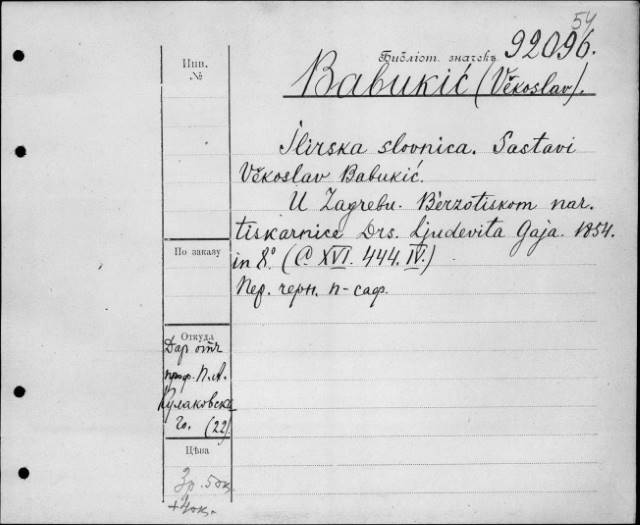 54
Библіот. значекъ 92096.
Babukić (Věkoslav).
Инв.
№
Ilirska slovnica. Sastavi
Věkoslav Babukić.
U Zagrebu. Bèrzotiskom nar.
tiskarnice Drs. Ljudevita Gaja. 1854.
in 8° (C. XVI. 444. IV.)
Пер. черн. п-саф.
По заказу
Откуда
Дар отъ
проф. П. А.
Кулаковска
го. (22)
Цѣна
3р. 50к.
+40к.